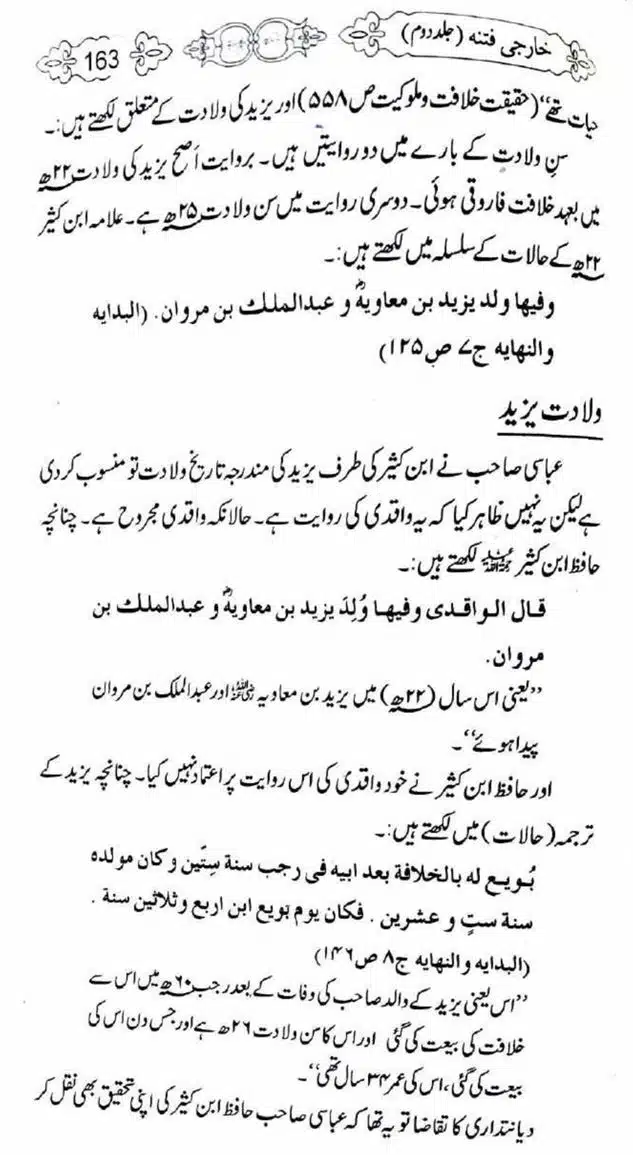 خارجی فتنہ (جلد دوم)
163
حیات تھے“ (حقیقت خلافت و ملوکیت ص ۵۵۸) اور یزید کی ولادت کے متعلق لکھتے ہیں:۔
سن ولادت کے بارے میں دو روایتیں ہیں۔ بروایت أصح یزید کی ولادت ۲۲ھ
میں بعہد خلافت فاروقی ہوئی۔ دوسری روایت میں سن ولادت ۲۵ھ ہے۔ علامہ ابن کثیر
۲۲ھ کے حالات کے سلسلہ میں لکھتے ہیں:۔
وفیها ولد یزید بن معاویہؓ و عبدالملک بن مروان. (البدایه
والنهایه ج۷ ص ۱۲۵)
ولادت یزید
عباسی صاحب نے ابن کثیر کی طرف یزید کی مندرجہ تاریخ ولادت تو منسوب کردی
ہے لیکن یہ نہیں ظاہر کیا کہ یہ واقدی کی روایت ہے۔ حالانکہ واقدی مجروح ہے۔ چنانچہ
حافظ ابن کثیر رحمۃ اللہ علیہ لکھتے ہیں:۔
قال الواقدی وفیها وُلِدَ یزید بن معاویہؓ و عبدالملک بن
مروان.
”یعنی اس سال (۲۲ھ) میں یزید بن معاویہ رضی اللہ عنہ اور عبدالملک بن مروان
پیدا ہوئے“۔
اور حافظ ابن کثیر نے خود واقدی کی اس روایت پر اعتماد نہیں کیا۔ چنانچہ یزید کے
ترجمہ (حالات) میں لکھتے ہیں:۔
بُویع له بالخلافة بعد ابیه فی رجب سنة سِتّین و کان مولده
سنة ستٍ و عشرین . فکان یوم بویع ابن اربع و ثلاثین سنة .
(البدایه و النهایه ج۸ ص ۱۴۶)
”اس یعنی یزید کے والد صاحب کی وفات کے بعد رجب ۶۰ھ میں اس سے
خلافت کی بیعت کی گئی اور اس کا سن ولادت ۲۶ھ ہے اور جس دن اس کی
بیعت کی گئی، اس کی عمر ۳۴ سال تھی“۔
دیانتداری کا تقاضا تو یہ تھا کہ عباسی صاحب حافظ ابن کثیر کی اپنی تحقیق بھی نقل کر